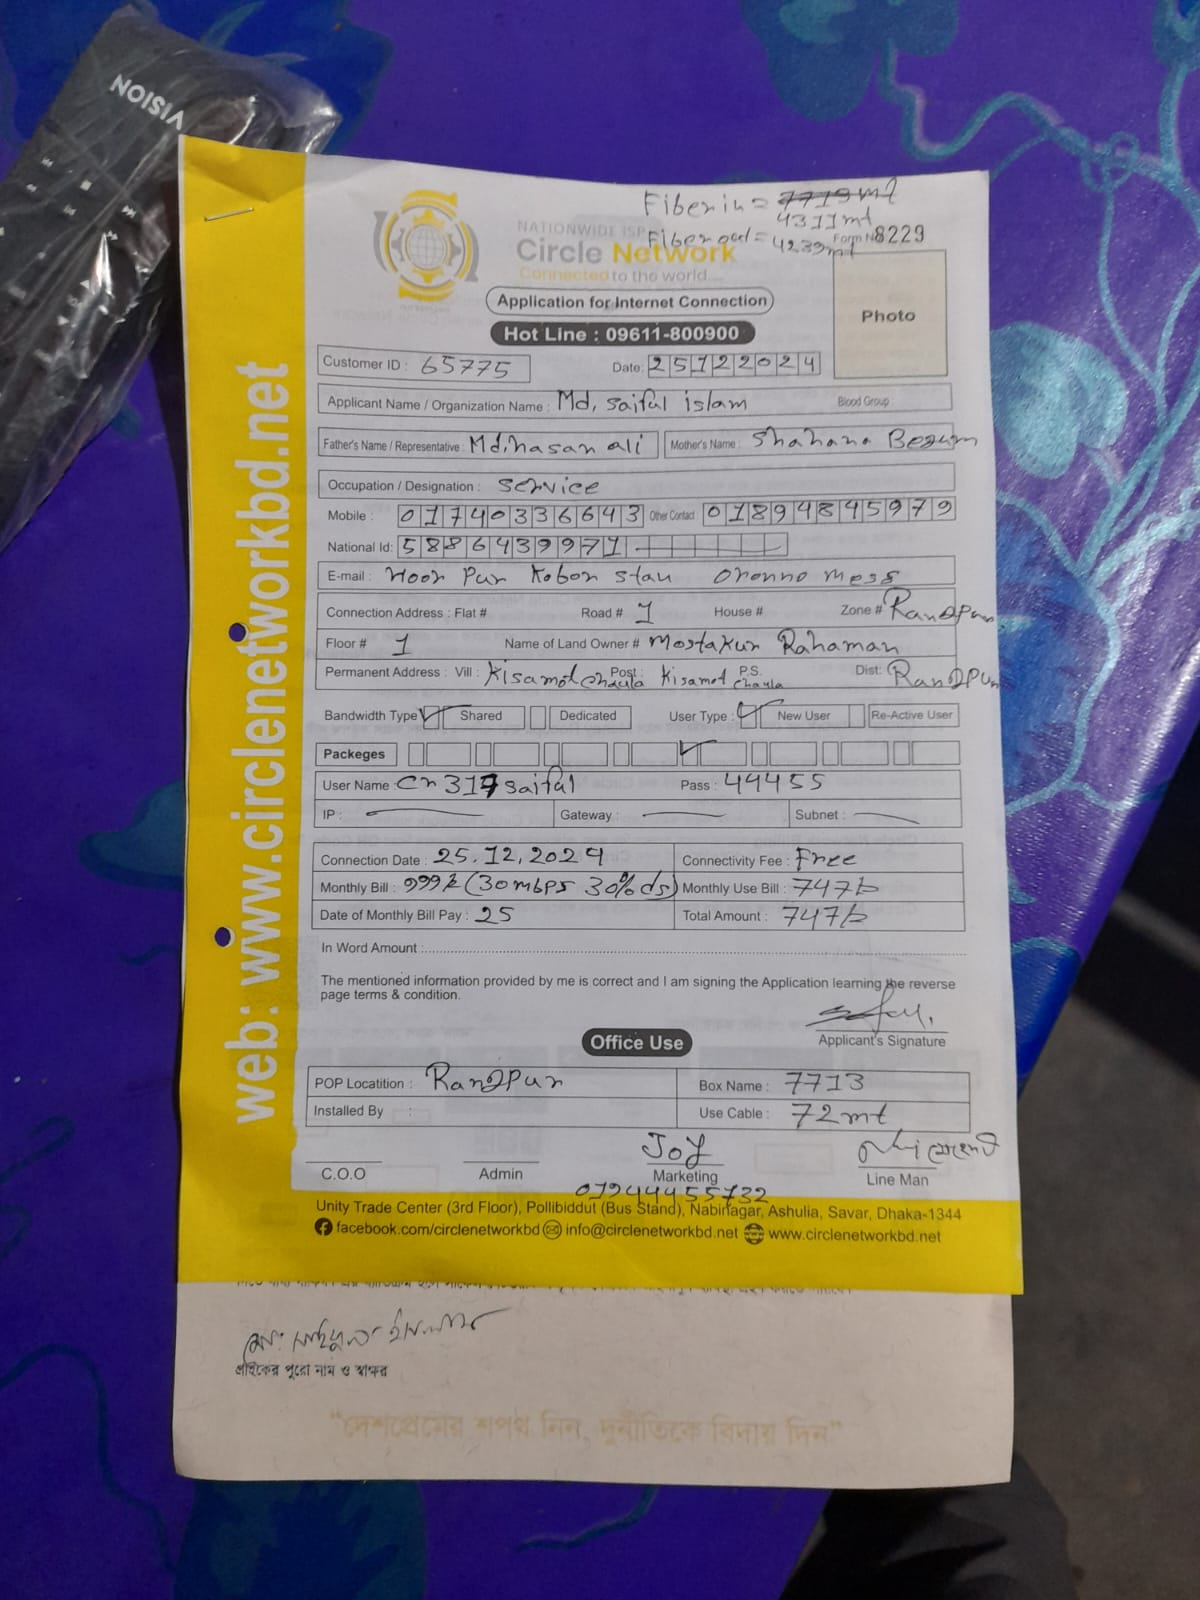 VISION
Fiber in = 7719mt
4311mt
Fiber out = 4239mt
NATIONWIDE ISP
Circle Network
Connected to the world....
Form No 8229
Application for Internet Connection
Hot Line : 09611-800900
Photo
Customer ID : 65775
Date: 25122024
Applicant Name / Organization Name : Md, Saiful islam Blood Group :
Father's Name / Representative : Md.hasan ali Mother's Name : Shahana Begum
Occupation / Designation : Service
Mobile : 01740336643 Other Contact 01894845979
National Id: 5886439971
E-mail : Noor Pur Kobor stan Oronno mess
Connection Address : Flat # Road # 1 House # Zone # Rangpur
Floor # 1 Name of Land Owner # Mostakur Rahaman
Permanent Address : Vill : Kisamot Chaula Post : Kisamot P.S. Chaula Dist: Rangpur
Bandwidth Type Shared Dedicated User Type : New User Re-Active User
Packeges
User Name : Cn317saiful Pass : 49455
IP : Gateway : Subnet :
Connection Date : 25.12.2024 Connectivity Fee : Free
Monthly Bill : 999৳ (30mbps 30% ds) Monthly Use Bill : 747৳
Date of Monthly Bill Pay : 25 Total Amount : 747৳
In Word Amount :
The mentioned information provided by me is correct and I am signing the Application learning the reverse
page terms & condition.
Applicant's Signature
Office Use
POP Locatition : Rangpur Box Name : 7713
Installed By : Use Cable : 72mt
Joy
C.O.O Admin Marketing Line Man
01944455732
Unity Trade Center (3rd Floor), Pollibiddut (Bus Stand), Nabinagar, Ashulia, Savar, Dhaka-1344
facebook.com/circlenetworkbd info@circlenetworkbd.net www.circlenetworkbd.net
web: www.circlenetworkbd.net
মোঃ সাইফুল ইসলাম
গ্রাহকের পুরো নাম ও স্বাক্ষর
"দেশপ্রেমের শপথ নিন, দুর্নীতিকে বিদায় দিন"